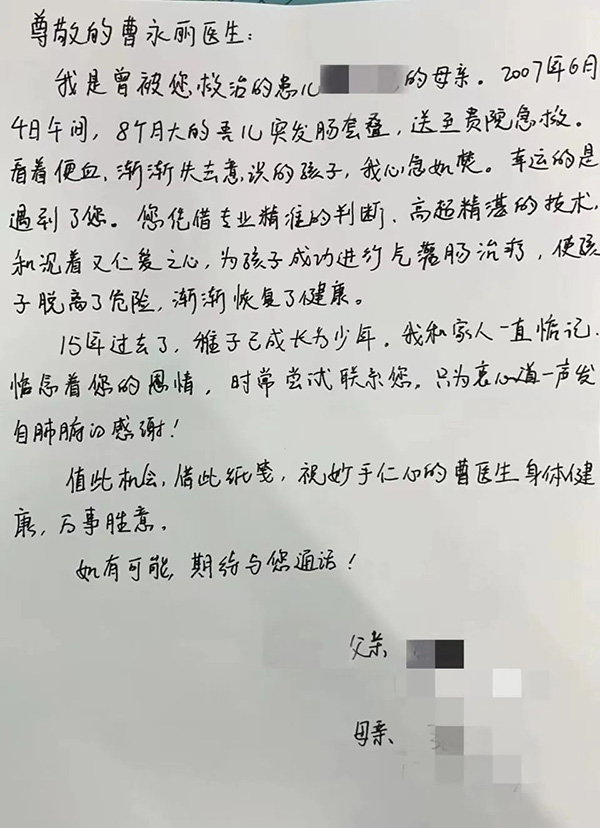 尊敬的曹永丽医生：
我是曾被您救治的患儿的母亲。2007年6月
4日午间，8个月大的吾儿突发肠套叠，送至贵院急救。
看着便血、渐渐失去意识的孩子，我心急如焚。幸运的是
遇到了您。您凭借专业精准的判断、高超精湛的技术，
和沉着又仁爱之心，为孩子成功进行气灌肠治疗，使孩
子脱离了危险，渐渐恢复了健康。
15年过去了，稚子已成长为少年。我和家人一直惦记、
惦念着您的恩情，时常尝试联系您，只为衷心道一声发
自肺腑的感谢！
值此机会，借此纸笺，祝妙手仁心的曹医生身体健
康，万事胜意。
如有可能，期待与您通话！
父亲、
母亲、